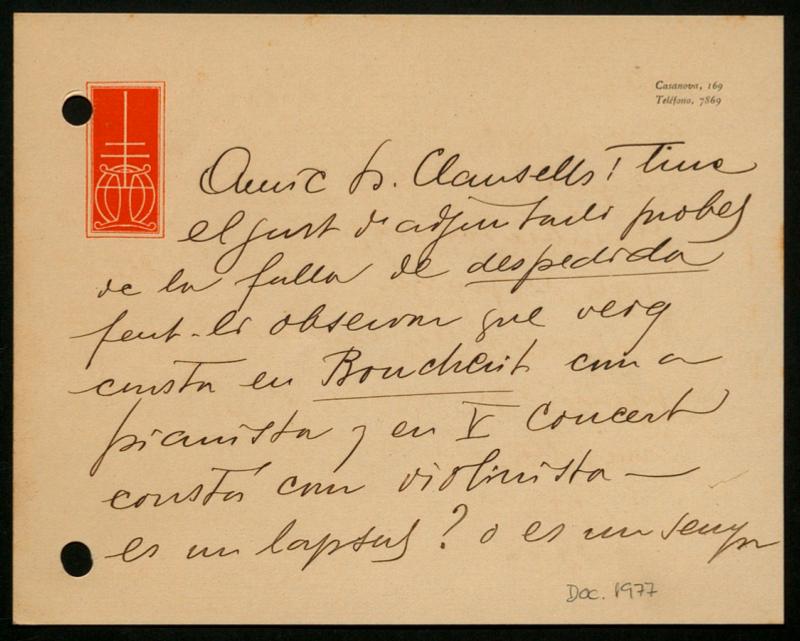 Casanova, 169
Teléfono, 7869
Amic Sr. Clausells! Tinc
el gust d'adjuntarli probes
de la fulla de despedida
fent-li observar que veig
consta en Boucherit com a
pianista y en V Concert
constá com violinista —
es un lapsus? o es un senyor
Doc. 1977